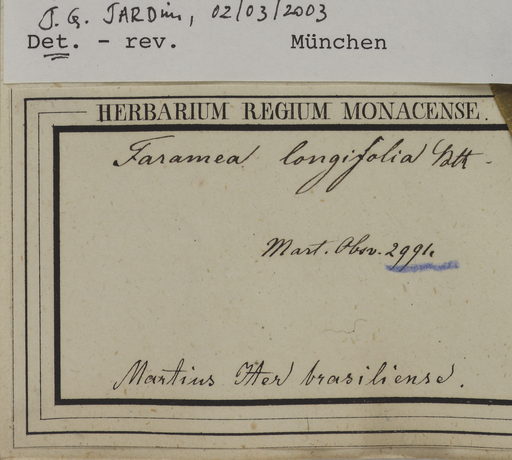 J. G. JARDim, 02/03/2003
Det. - rev. München
HERBARIUM REGIUM MONACENSE.
Faramea longifolia Bth.
Mart. Obsv. 2991.
Martius Iter brasiliense.